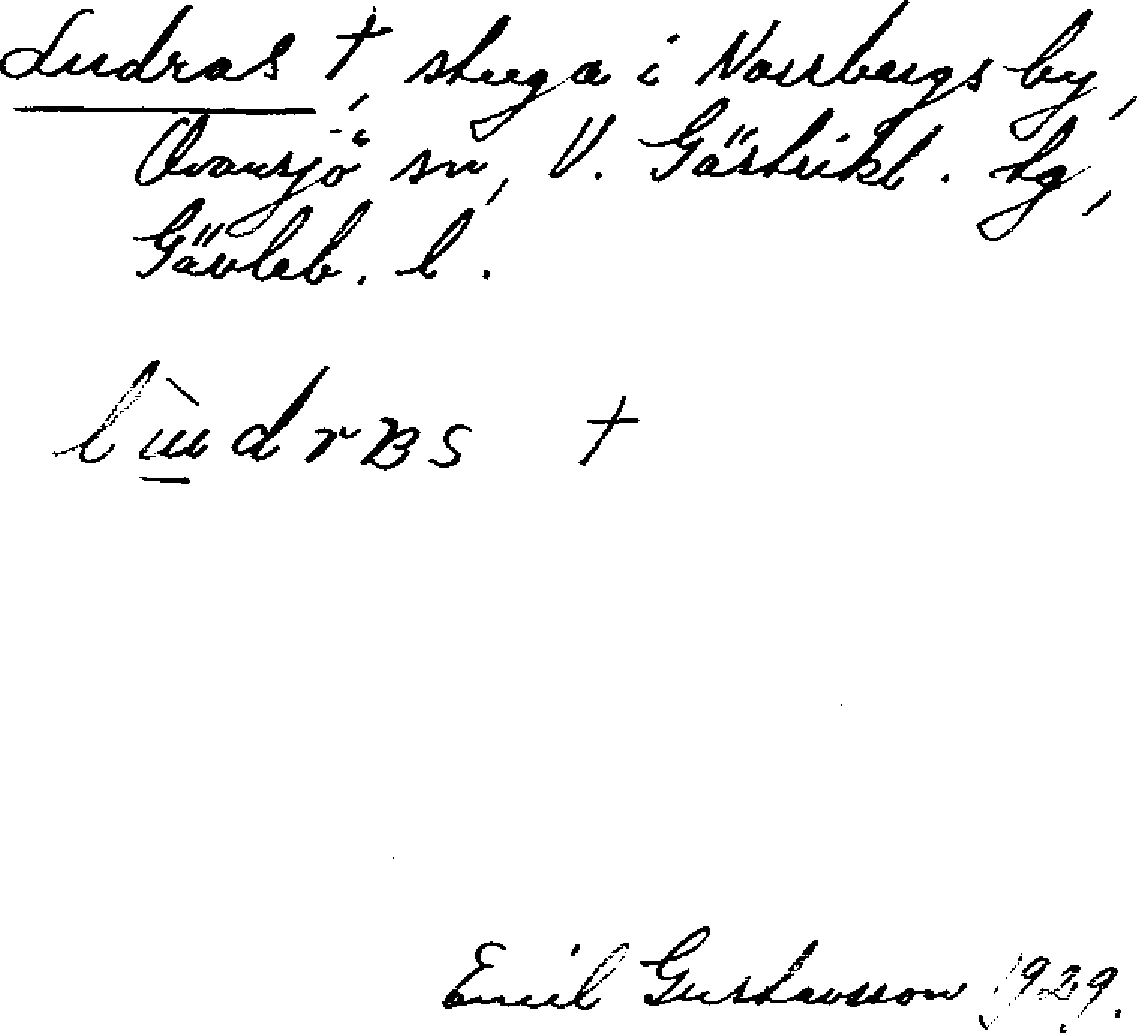 Ludras †, stuga i Norrbergs by,
Ovansjö sn, V. Gästrikl. tg,
Gävleb. l.
lùdrʙs †
Emil Gustavsson 1929.